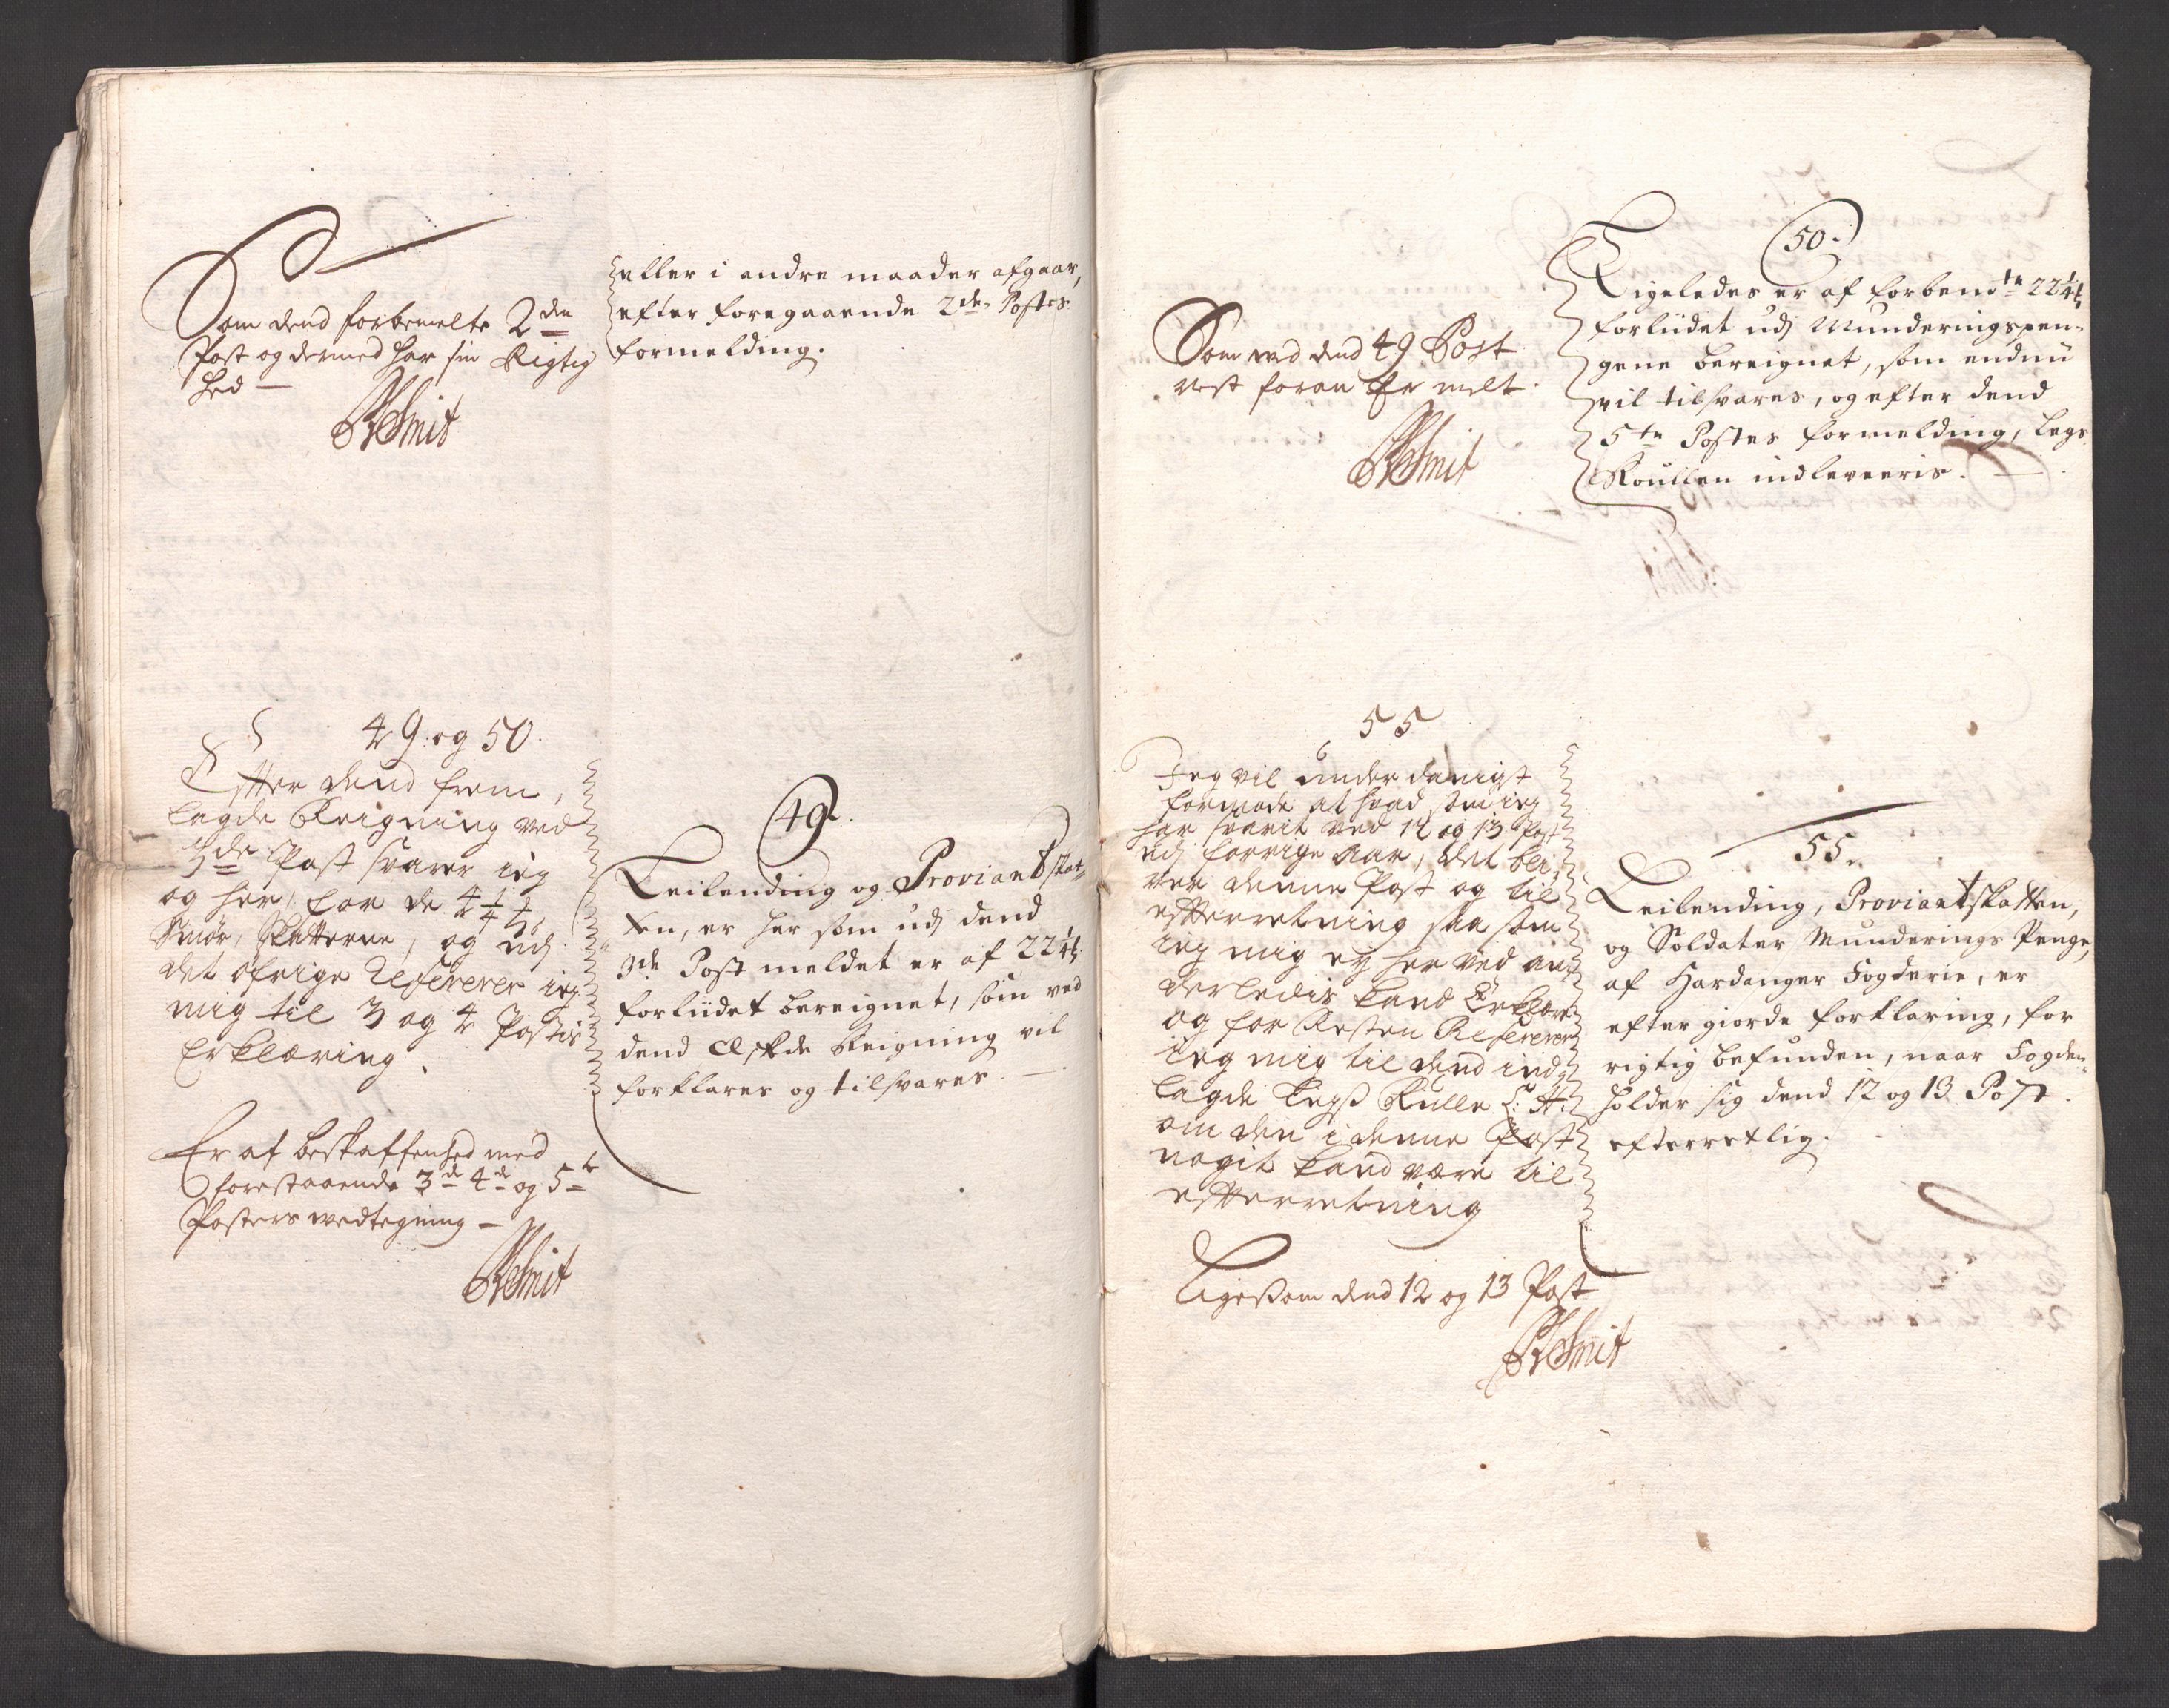 Som dend forbemelte 2den
Post og dermed har sin Rigtig
hed —
Smit
eller i andre maader afgaar,
efter foregaaende 2den Postes
formelding.
49 og 50.
Efter dend frem,
lagde Reigning ved
3de Post svarer ieg
og her, for de 4 1/4
Smør, Skatterne, og udj
det öfrige Refererer ieg
mig til 3 og 4 Postis
Erklæring.
Er af beskaffenhed med
forestaaende 3de 4de og 5te
Posters vedtegning —
Smit
49.
Leilending og Proviantskat-
ten, er her som udj dend
3de Post meldet er af 224
forliidet bereignet, som ved
dend Æskede Reigning vil
forklares og tilsvares. —
Som ved dend 49 Post
nest foran Er melt.
Smit
50.
Ligeledes er af forbemte 224
forliidet udj Munderingspen-
gene bereignet, som endnu
vil tilsvares, og efter dend
5te Postes formelding, Legs
Roullen indleveeris.
55
Jeg vil underdanigst
formode at hvad som ieg
har svarit ved 12 og 13 Post
udj forrige Aar, det bli,
ver denne Post og til
efterretning saa som
ieg mig ej her ved an,
derledis kand Erklære
og for Resten Refererer
ieg mig til dend ind,
lagde Legs Rulle L: A:
om den i denne Post
nogit kand være til
efterretning
Ligesom dend 12 og 13 Post
Smit
55.
Leilending, Proviantskatten,
og Soldater Munderings Penge,
af Hardanger Fogderie, er
efter giorde forklaring, for
rigtig befunden, naar Fogden
holder sig dend 12 og 13 Post
efterretlig.